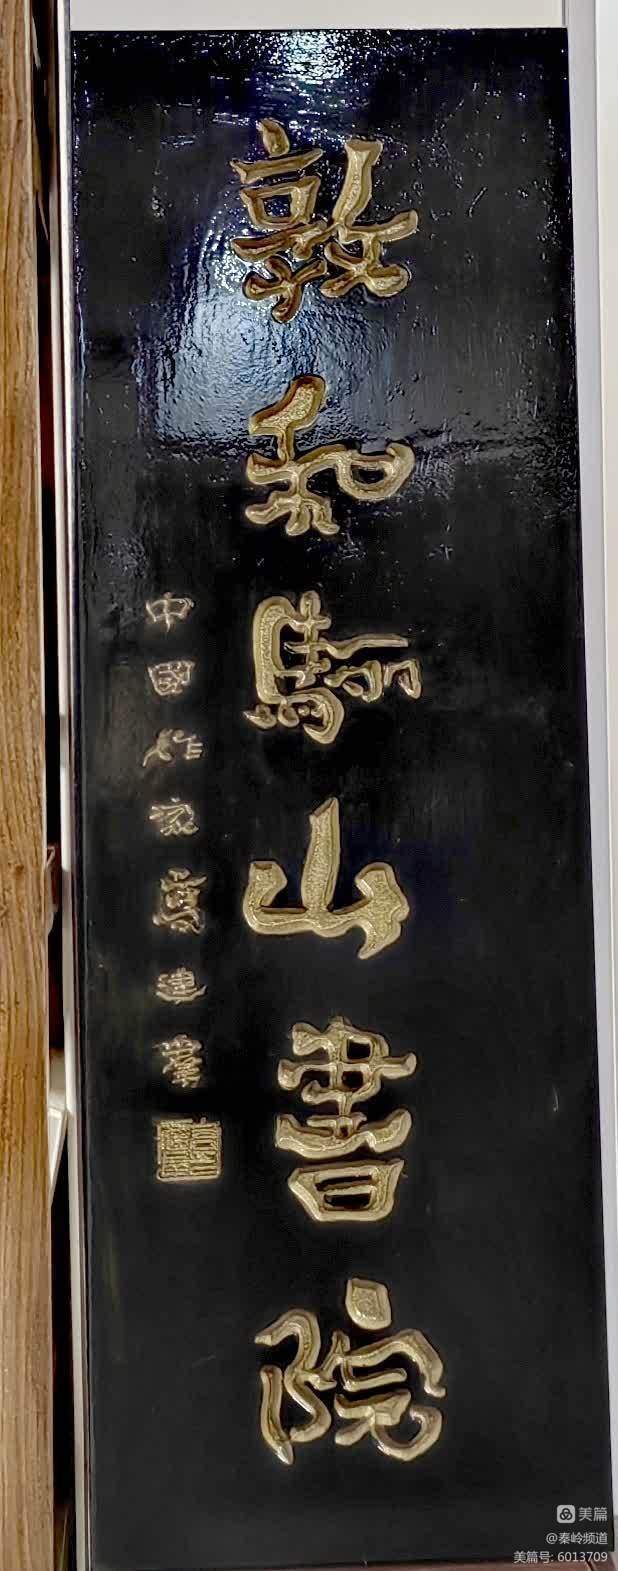 敦和驪山書院
中國作家高建羣
美篇
@秦岭频道
美篇号: 6013709